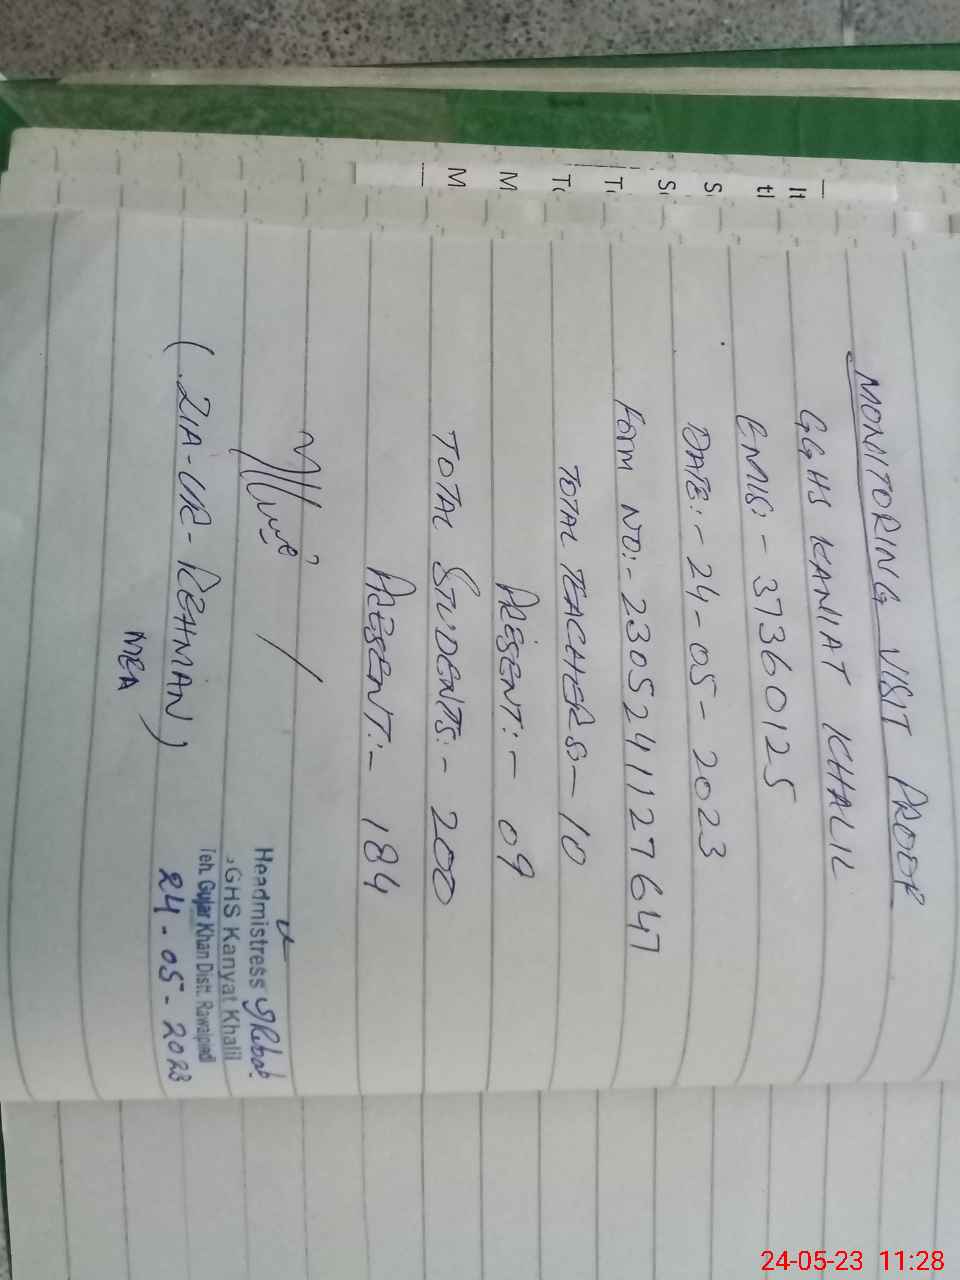 MONITORING VISIT PROOF
GGHS KANIAT KHALIL
EMIS:- 37360125
DATE:- 24-05-2023
Form NO:- 2305241127647
TOTAL TEACHERS- 10
PRESENT:- 09
TOTAL STUDENTS:- 200
PRESENT:- 184
(ZIA-UR-REHMAN)
MEA
Headmistress
GHS Kanyat Khalil
Teh. Gujar Khan Distt. Rawalpindi
24-05-2023
It
tl
S
S
T
T
M
M
24-05-23 11:28